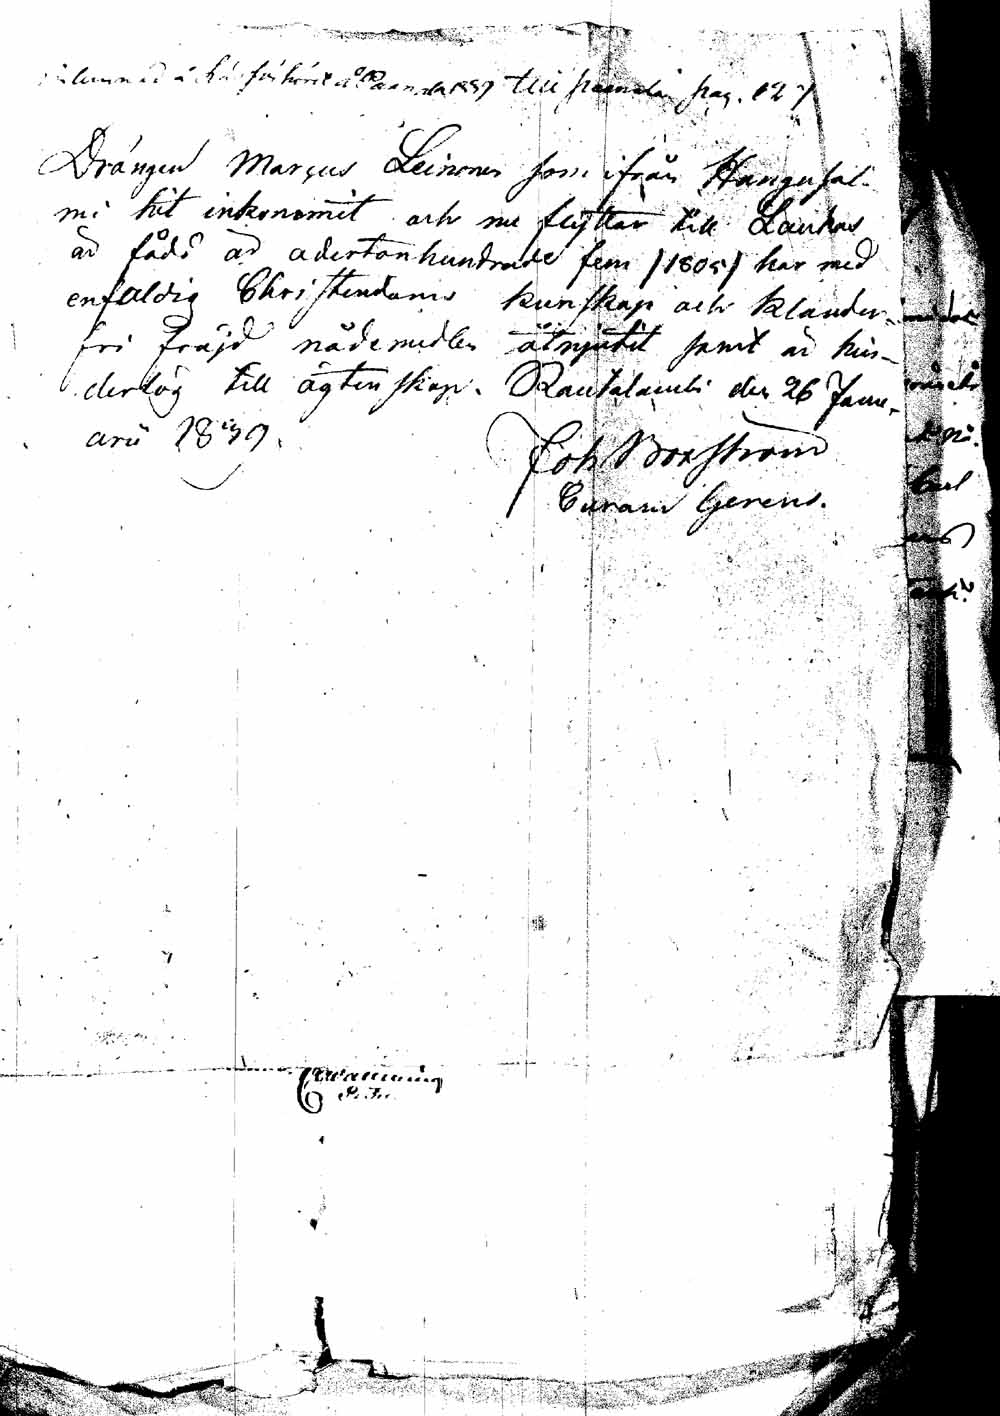 inlemnad å Läsförhöret å Paanala 1839 till Paanala pag. 127
Drängen Marcus Leinonen som ifrån Hangasal-
mi hit inkommit och nu flyttar till Laukas
är född år adertonhundrade fem /1805/ har med
enfaldig Christendoms kunskap och klander-
fri fräjd nådemedlen åtnjutit samt är hin-
derlög till ägtenskap. Rautalambi den 26 Janu-
arii 1839.
Joh Boxström
Curam Gerens.